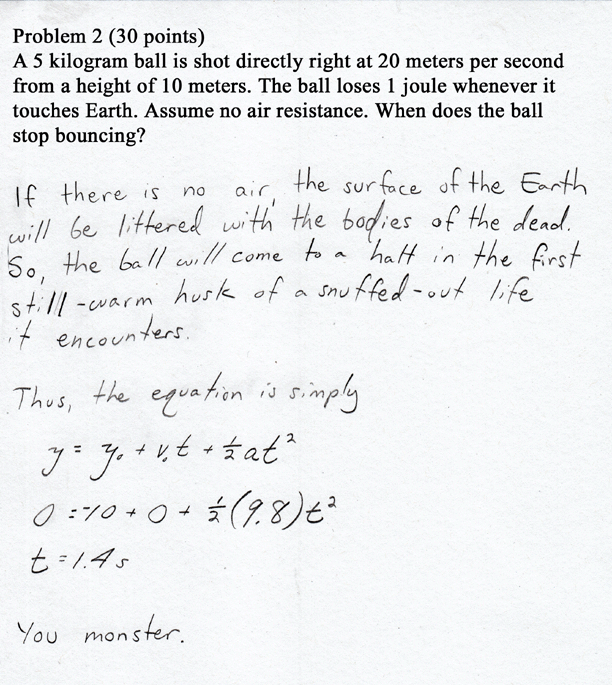 Problem 2 (30 points)
A 5 kilogram ball is shot directly right at 20 meters per second
from a height of 10 meters. The ball loses 1 joule whenever it
touches Earth. Assume no air resistance. When does the ball
stop bouncing?
If there is no air, the surface of the Earth
will be littered with the bodies of the dead.
So, the ball will come to a halt in the first
still-warm husk of a snuffed-out life
it encounters.
Thus, the equation is simply
y = y₀ + v₀t + ½at²
0 = -10 + 0 + ½(9.8)t²
t = 1.4 s
You monster.